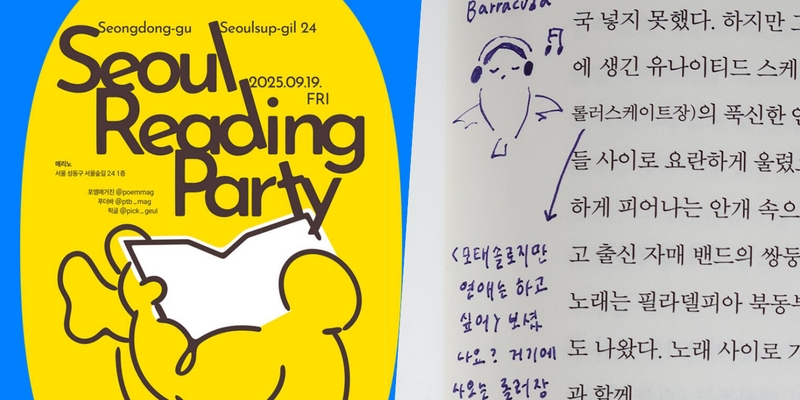 Seongdong-gu
Seoulsup-gil 24
Seoul
2025.09.19.
FRI
Reading
Party
메리노
서울 성동구 서울숲길 24 1층
포엠매거진 @poemmag
푸더바 @ptb_mag
픽글 @pick_geul
Barracuda
국 넣지 못했다. 하지만
에 생긴 유나이티드 스케
롤러스케이트장)의 푹신한
들 사이로 요란하게 울렸
하게 피어나는 안개 속으
고 출신 자매 밴드의 쌍둥
노래는 필라델피아 북동부
도 나왔다. 노래 사이로
과 함께
<모태솔로지만
연애는 하고
싶어> 보셨
나요? 거기에
나오는 롤러장